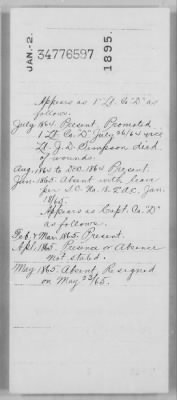 JAN.-2.
34776597
1895.
Appears as 1" Lt. Co "D" as
follows.
July 1864. Present. Promoted
1 Lt. Co. "D" July 26/64 vice
Lt. J. D. Simpson died
of wounds.
Aug. 1864 to Dec. 1864 Present.
Jan. 1865. Absent with leave
per S.O. No. 18. Jan.
18/65.
Appears as Capt. Co. "D"
as follows.
Feb. & Mar. 1865. Present.
Apl. 1865. Presence or Absence
not stated.
May 1865. Absent. Resigned
on May 23/65.